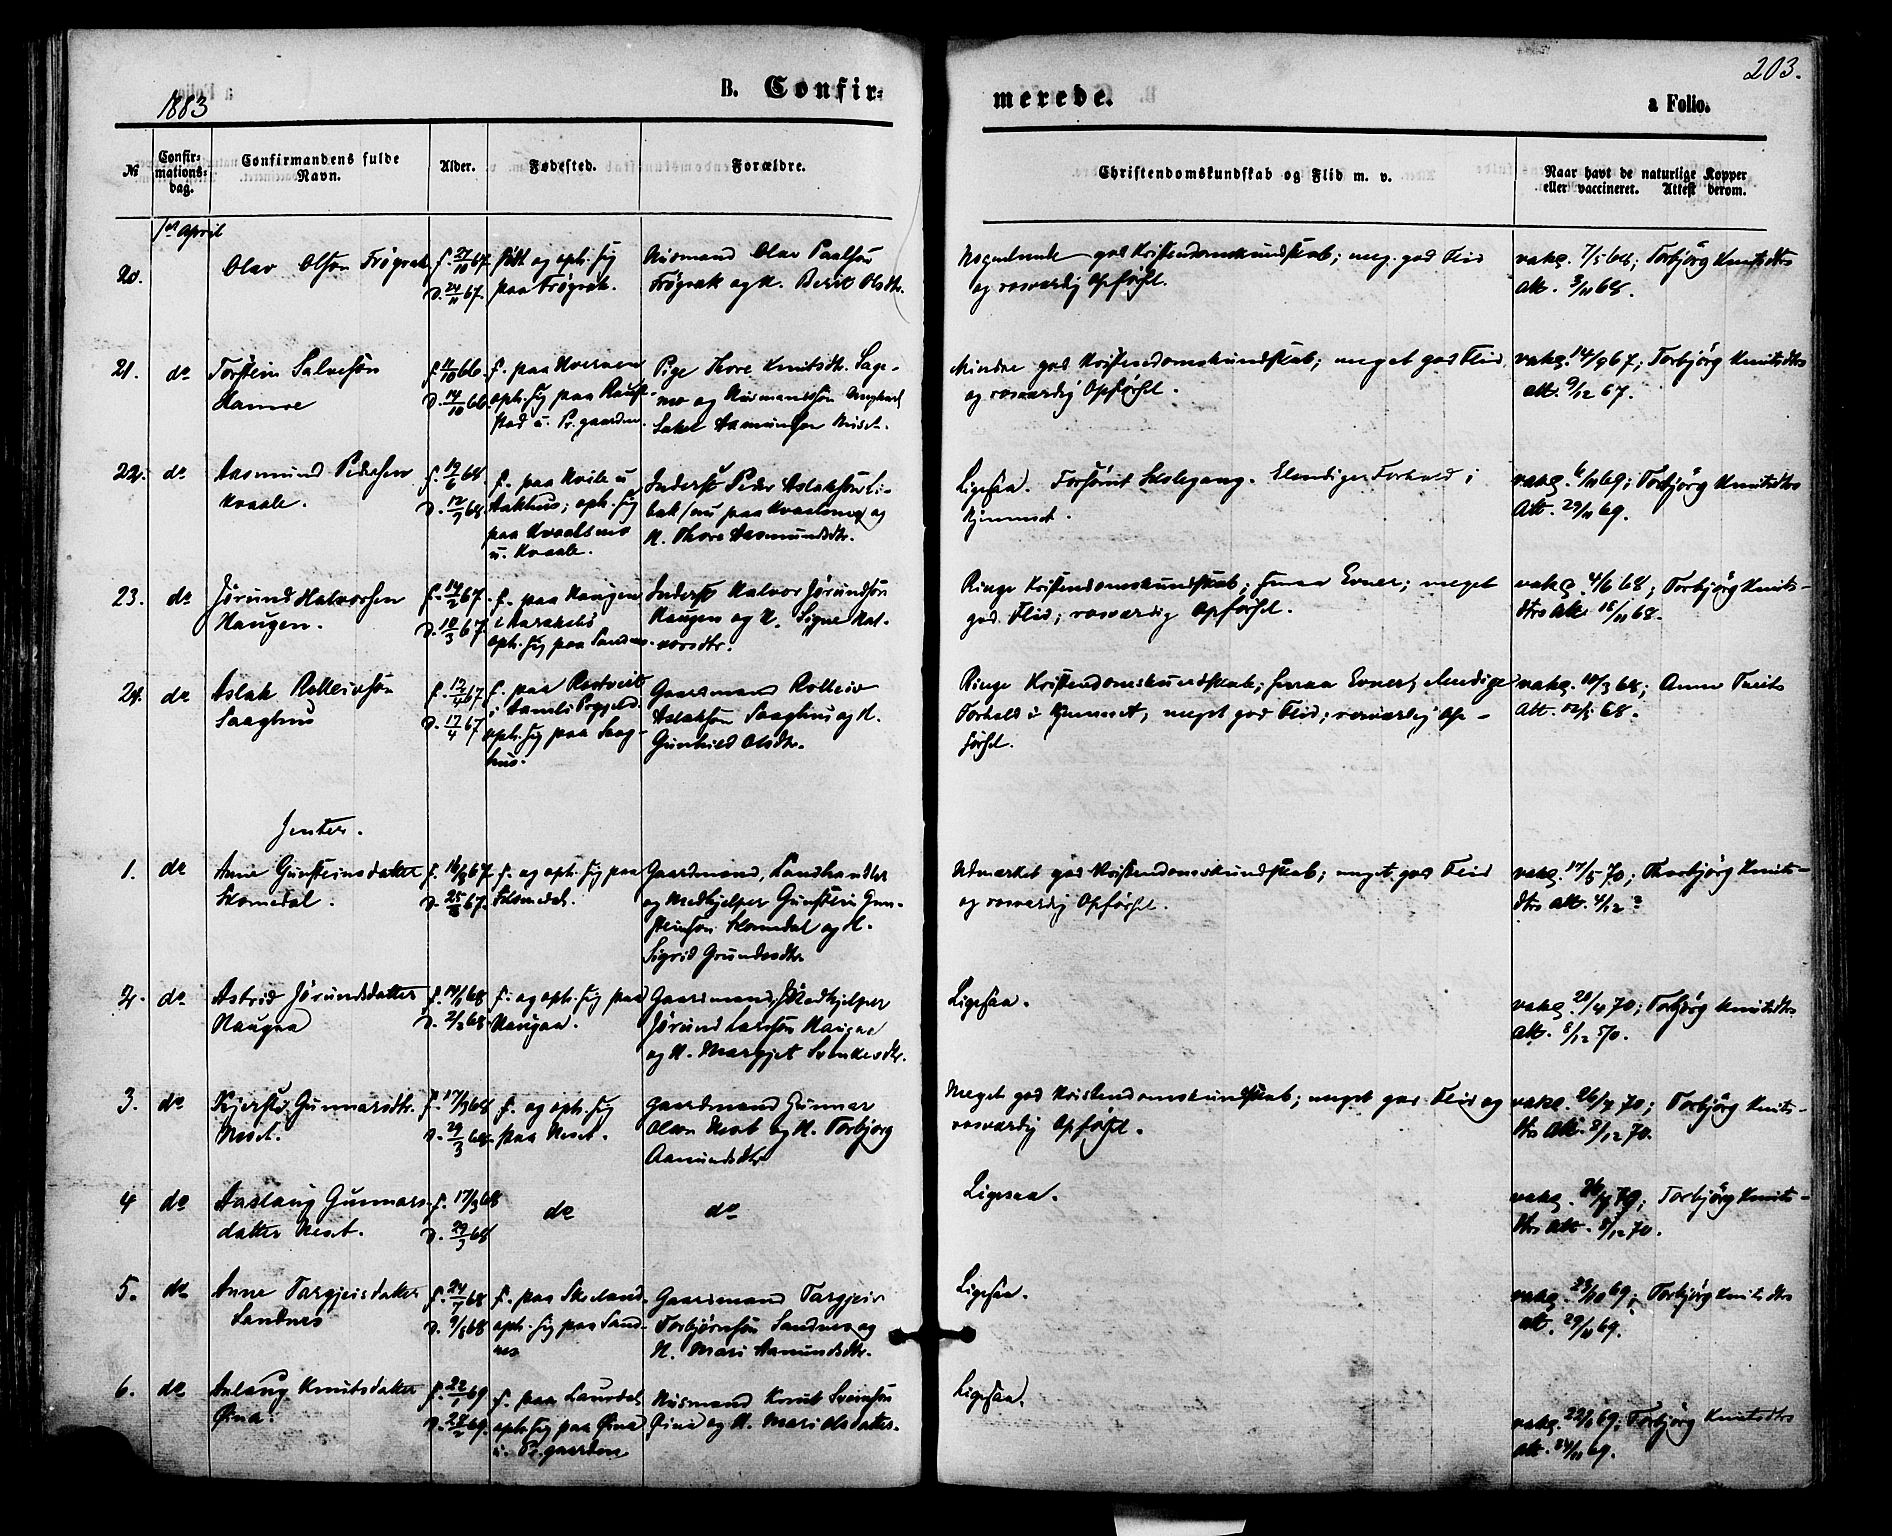 1883
B. Confir-
merede.
203.
a Folio.
№
Confir-
mations-
dag.
Confirmandens fulde
Navn.
Alder.
Fødested.
Forældre.
Christendomskundskab og Flid m. v.
Naar havt de naturlige Kopper
eller vaccineret. Attest derom.
1ste April
20.
Olav Olsøn Frøgrak
f. 27/10 67.
D. 24/11 67.
Født og oph. sig
paa Frøgrak.
Husmand Olav Paalsøn
Frøgrak og H. Berit Olsdtr.
Nogenlunde god Kristendomskundskab; meg. god Flid
og rosværdig Opførsel.
vakc. 7/5 68; Torbjörg Knutsdtrs
att. 3/11 68.
21. do
Torstein Salvesøn
Hamre
D. 14/10 66.
f. paa Kvernen
oph. sig paa
u. Pr.gaarden.
Pige Thore Knutsdtr.
Mindre god Kristendomskundskab; meget god Flid
og rosværdig Opførsel.
vakc. 14/9 67; Torbjörg Knutsdtrs
att. 9/12 67.
22. do
Aasmund Pedersen
Kvaale.
f. 19/6 68
D. 12/7 68.
f. paa Kvile u
oph. sig
paa Kvaalsmo
u. Kvaale.
Inderst Peder Aslaksøn Li-
bak (nu paa Kvaalsmo) og
H. Thore Aasmundsdtr.
Ligesaa. Forsömt Skolegang. Elendige Forhold i
Hjemmet.
vakc. 6/10 69; Torbjörg Knutsdtrs
Att. 29/11 69.
23. do
Jørund Halvorsen
Haugen.
f. 14/2 67.
D. 10/3 67.
f. paa Haugen
oph. sig paa Sandnes.
Inderst Halvor Jørundsøn
Haugen og H. Signe Hal-
vorsdtr.
Ringe Kristendomskundskab; smaa Evner; meget
god Flid; rosværdig Opførsel.
vakc. 4/6 68; Torbjörg Knuts-
dtrs Att. 18/11 68.
24. do
Aslak Rolleivsøn
Saaghus
f. 12/4 67
D. 17/4 67
f. paa
i Aamli Prgjeld.
oph. sig paa Saag-
hus.
Gaardmand Rolleiv
Aslaksøn Saaghus og H.
Gunhild Olsdtr.
Ringe Kristendomskundskab; smaa Evner; elendige
Forhold i Hjemmet; meget god Flid; rosværdig Op-
førsel.
vakc. 10/3 68; Anne
Att. 68.
Jenter.
1. do
Anne Gunsteinsdatter
Skomedal.
f. 16/8 67.
D. 25/8 67.
f. og oph. sig paa
Skomedal.
Gaardmand, Landhandler
og Medhjelper Gunstein Gun-
steinsøn Skomedal og H.
Sigrid Grundesdtr.
Udmærket god Kristendomskundskab; meget god Flid
og rosværdig Opførsel.
vakc. 17/5 70; Thorbjörg Knuts-
dtrs att. 4/12 ?
2. do
Astrid Jørundsdatter
Haugaa
f. 14/1 68
D. 2/2 68
f. og oph. sig paa
Haugaa.
Gaardmand, Medhjelper
Jørund Larssøn Haugaa
og H. Margjet Svenkesdtr.
Ligesaa.
vakc. 28/4 70; Torbjörg Knutsdtrs
att. 8/12 70.
3. do
Kjersti Gunnarsdtr.
Neset.
f. 17/3 68
D. 29/3 68.
f. og oph. sig
paa Neset.
Gaardmand Gunnar
Olsen Neset og H. Torbjørg
Aamundsdtr
Meget god Kristendomskundskab; meget god Flid og
rosværdig Opførsel.
vakc. 26/4 70; Torbjörg Knuts-
dtrs Att. 8/12 70.
4 do
Aaslaug Gunnars-
datter Neset.
f. 17/3 68
D. 29/3 68
do
do
Ligesaa.
vakc. 26/4 70; Torbjörg Knuts-
dtrs Att. 8/12 70.
5. do
Anne Targjeisdatter
Sandnes
f. 24/7 68
D. 9/8 68
f. paa Skeeland
oph. sig paa Sand-
nes
Gaardmand Targjeir
Torbjørnsøn Sandnes og
H. Mari Aamundsdtr.
Ligesaa.
vakc. 23/10 69; Torbjörg Knutsdtrs
att. 29/11 69.
6. do
Aslaug Knutsdatter
Øina.
f. 22/1 69
D. 28/2 69.
f. paa Laurdal
oph. sig paa Øina
u. Pr.gaarden
Husmand Knut Sveinsøn
Øina og H. Mari Olsdatter.
Ligesaa.
vakc. 22/10 69. Torbjörg Knutsdtrs
att. 24/11 69.